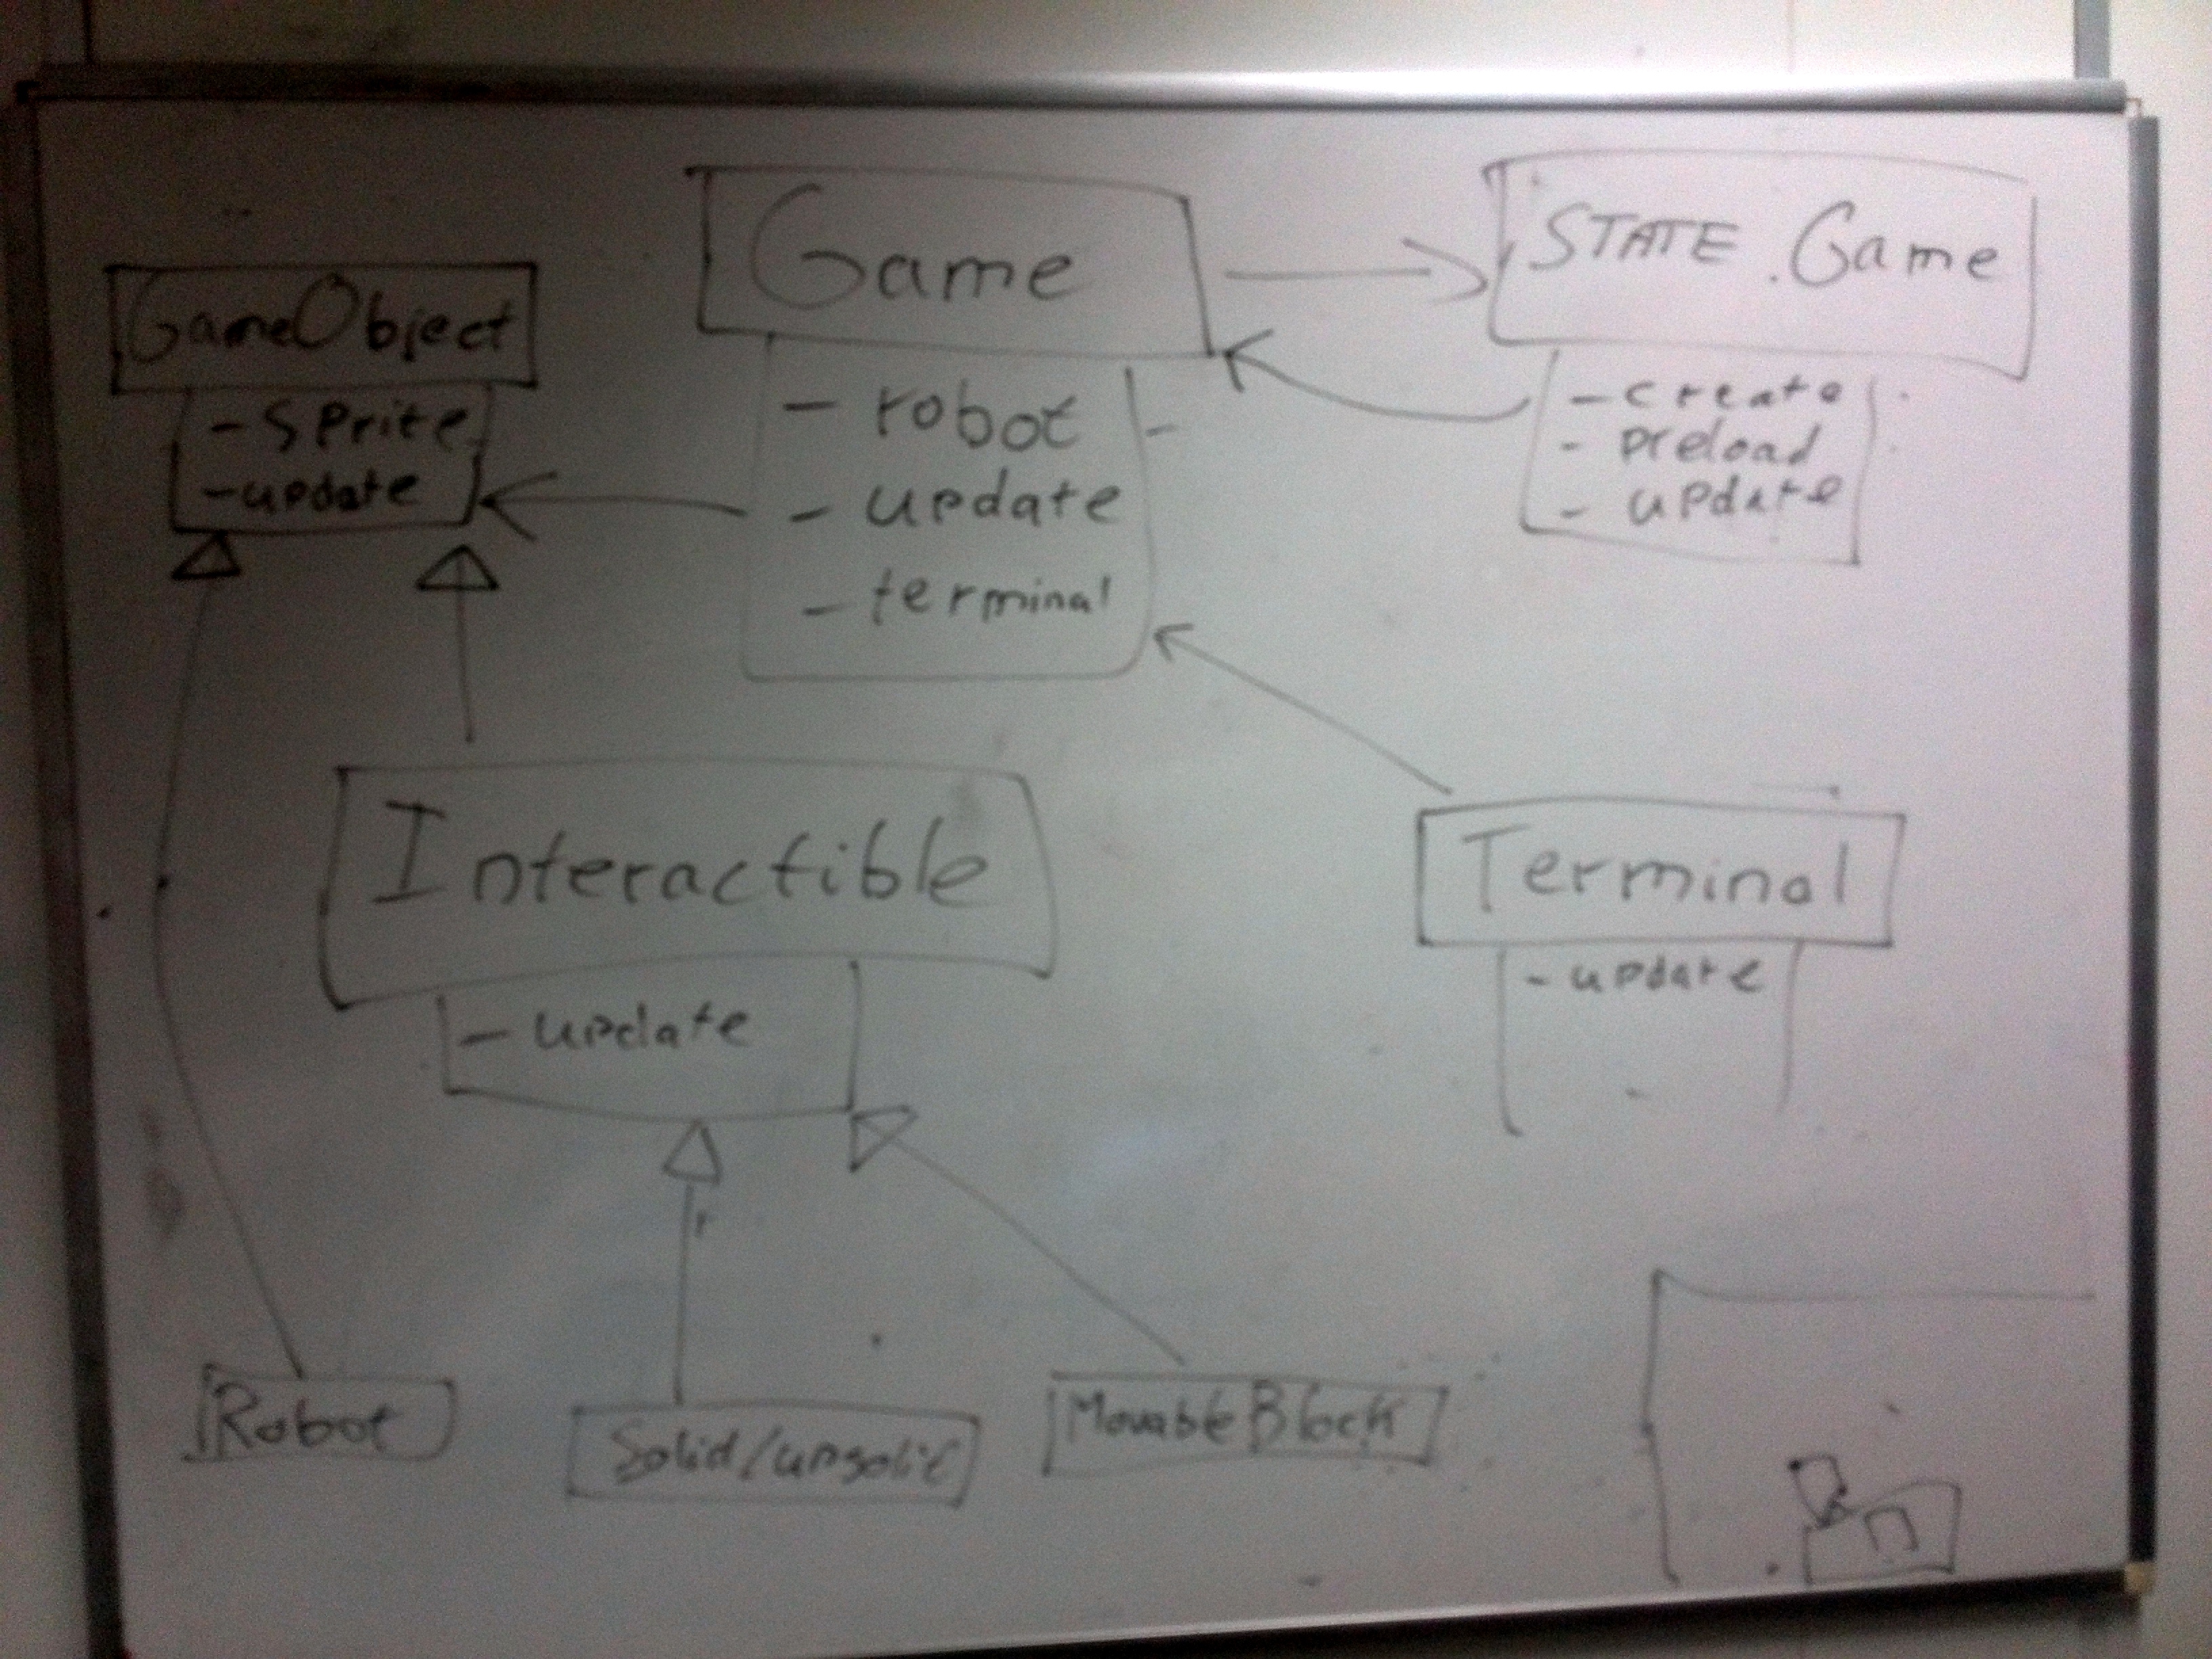 GameObject
- sprite
- update
Game
- robot
- update
- terminal
STATE.Game
- create
- preload
- update
Interactible
- update
Terminal
- update
Robot
Solid/unsolid
MovableBlock